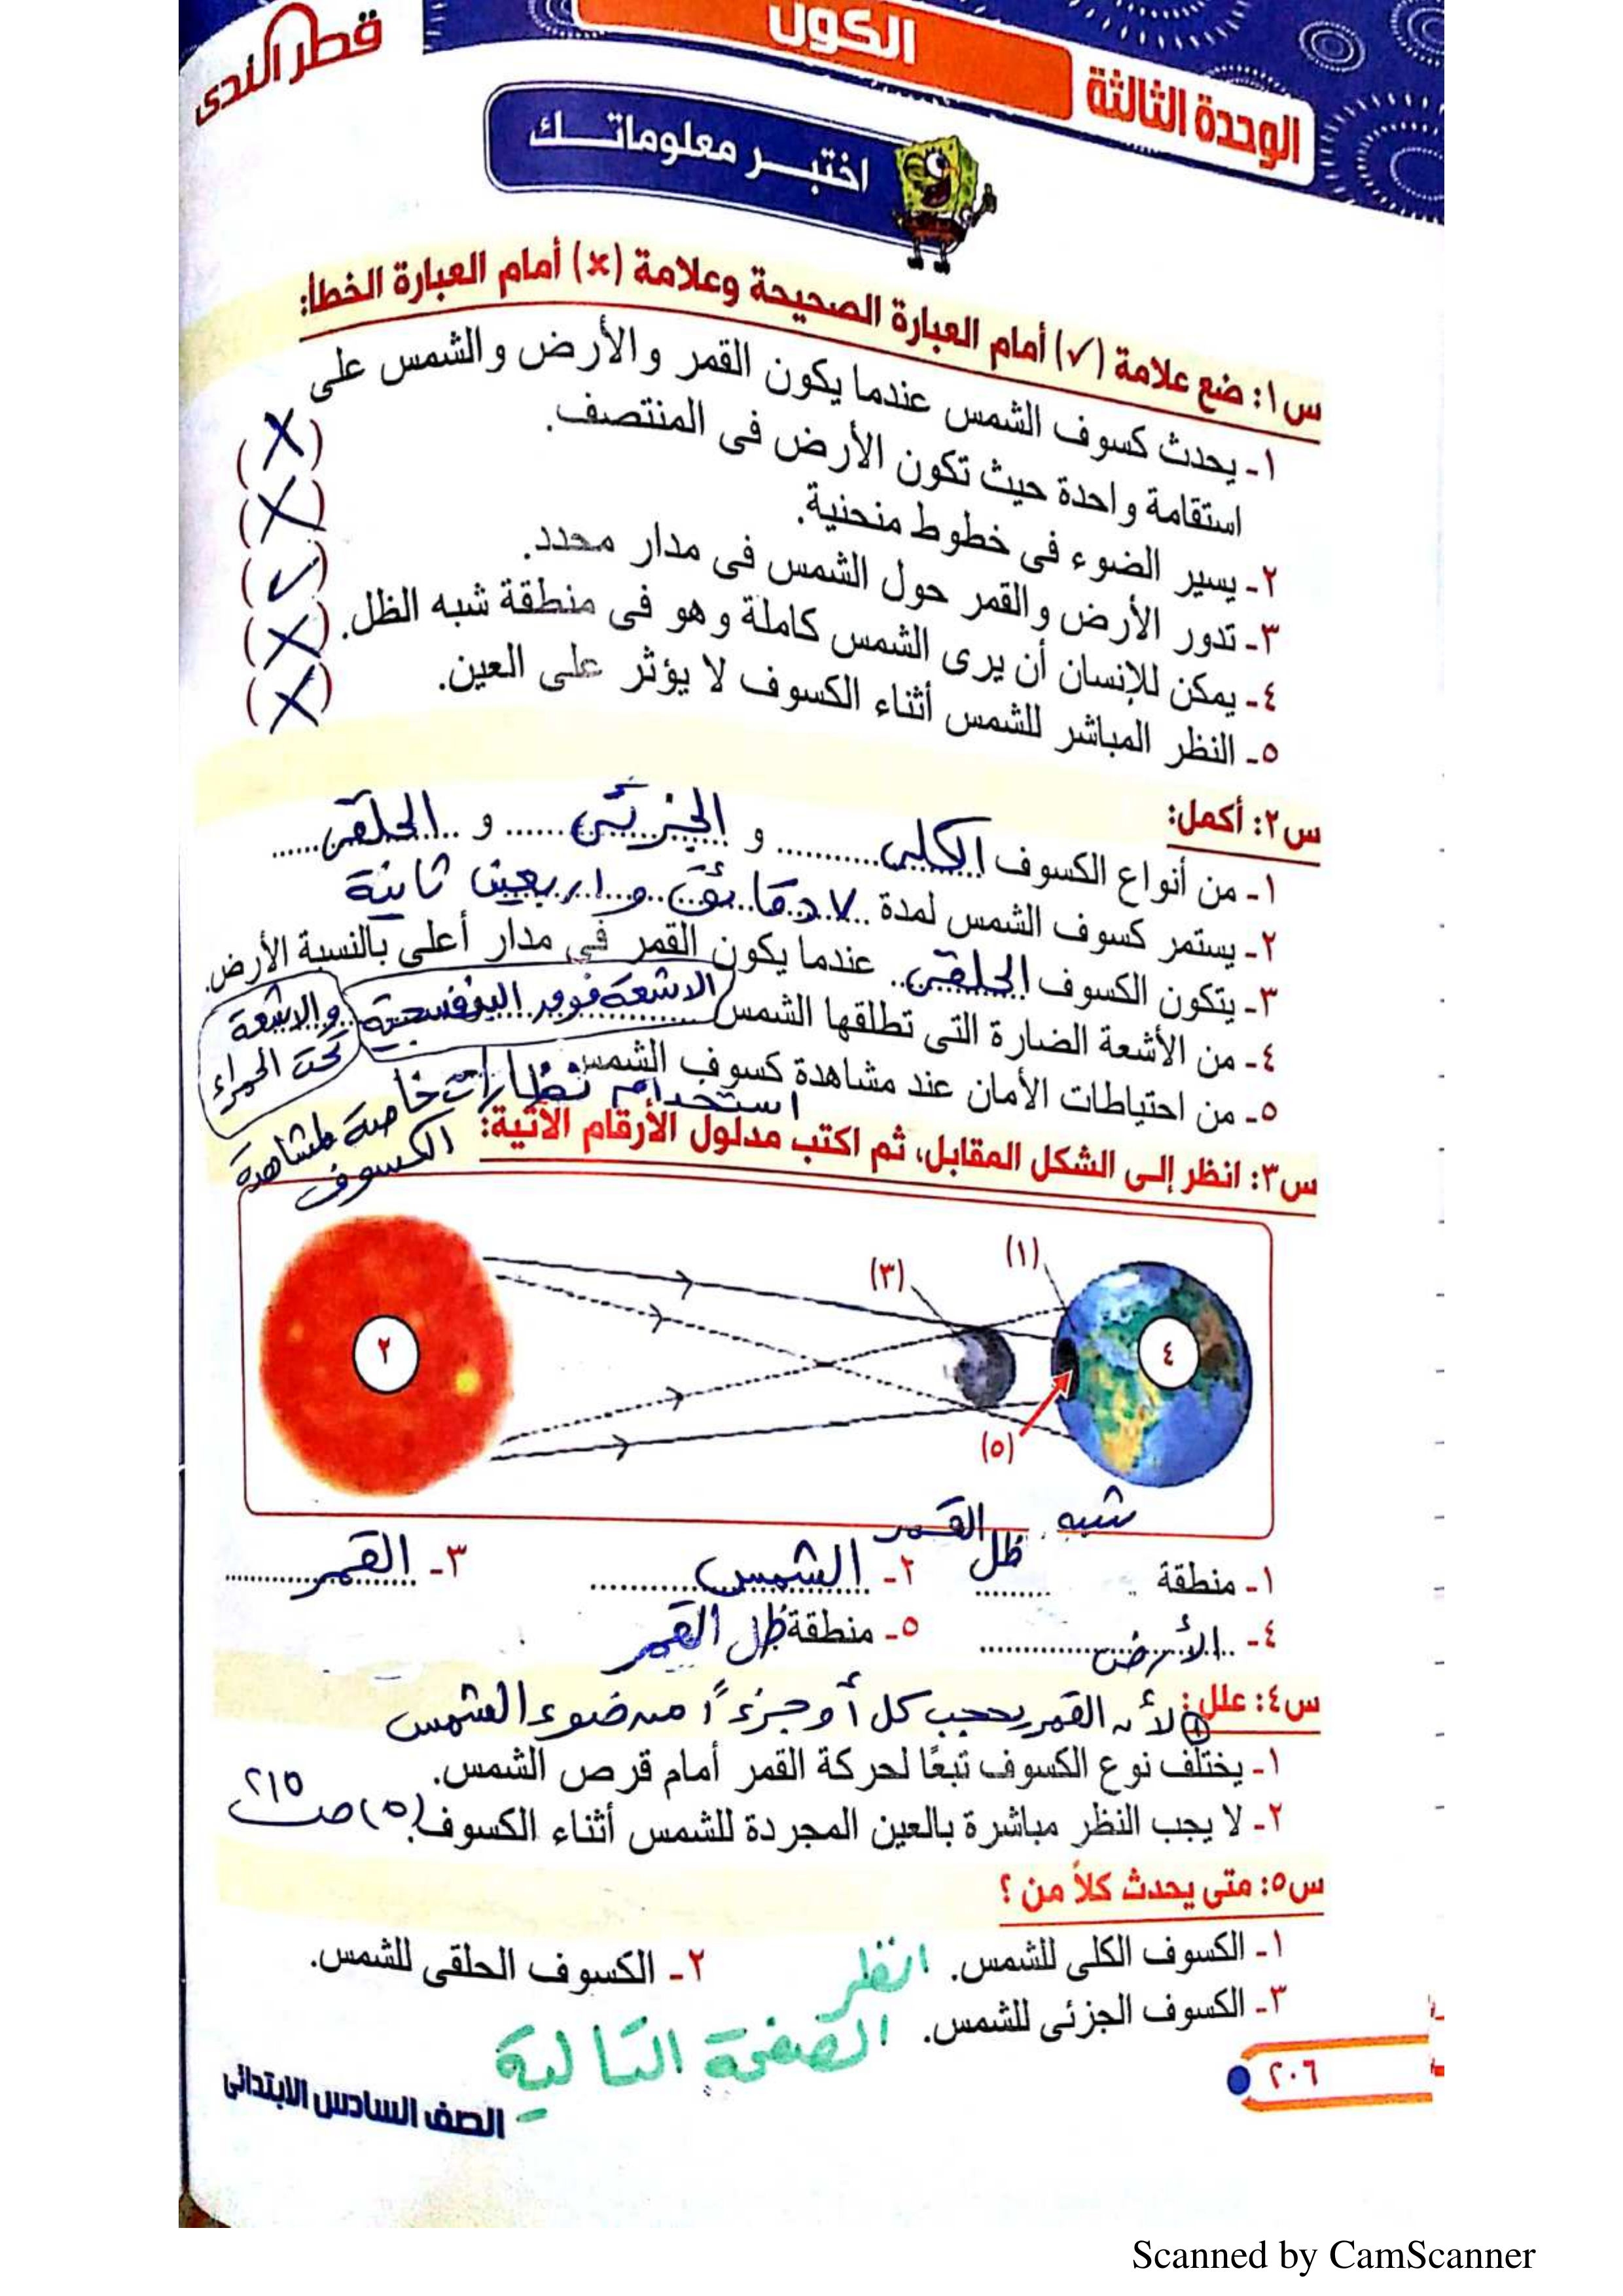 قطر الندى
الكون
الوحدة الثالثة
اختبر معلوماتك
س١: ضع علامة (✓) أمام العبارة الصحيحة وعلامة (×) أمام العبارة الخطأ:
١- يحدث كسوف الشمس عندما يكون القمر والأرض والشمس على
استقامة واحدة حيث تكون الأرض فى المنتصف. (X)
٢- يسير الضوء فى خطوط منحنية. (X)
٣- تدور الأرض والقمر حول الشمس فى مدار محدد. (✓)
٤- يمكن للإنسان أن يرى الشمس كاملة وهو فى منطقة شبه الظل. (X)
٥- النظر المباشر للشمس أثناء الكسوف لا يؤثر على العين. (X)
س٢: أكمل:
١- من أنواع الكسوف الكلى و الجزئى و الحلقى
٢- يستمر كسوف الشمس لمدة ٧ دقائق و اربعين ثانية
٣- يتكون الكسوف الحلقى عندما يكون القمر فى مدار أعلى بالنسبة الأرض.
٤- من الأشعة الضارة التى تطلقها الشمس الاشعة فوق البنفسجية والاشعة
تحت الحمراء
٥- من احتياطات الأمان عند مشاهدة كسوف الشمس
استخدام نظارات خاصة لمشاهدة
الكسوف
س٣: انظر إلى الشكل المقابل، ثم اكتب مدلول الأرقام الآتية:
(١)
(٣)
٢
٤
(٥)
١- منطقة شبه ظل القمر ٢- الشمس ٣- القمر
٤- الأرض ٥- منطقة ظل القمر
س٤: علل: ① لأن القمر يحجب كل أو جزءًا من ضوء الشمس
١- يختلف نوع الكسوف تبعًا لحركة القمر أمام قرص الشمس.
٢- لا يجب النظر مباشرة بالعين المجردة للشمس أثناء الكسوف. (٥) صـ ٢١٥
س٥: متى يحدث كلاً من ؟
١- الكسوف الكلى للشمس. ٢- الكسوف الحلقى للشمس.
٣- الكسوف الجزئى للشمس.
انظر
الصفحة التالية
٢٠٦
الصف السادس الابتدائى
Scanned by CamScanner